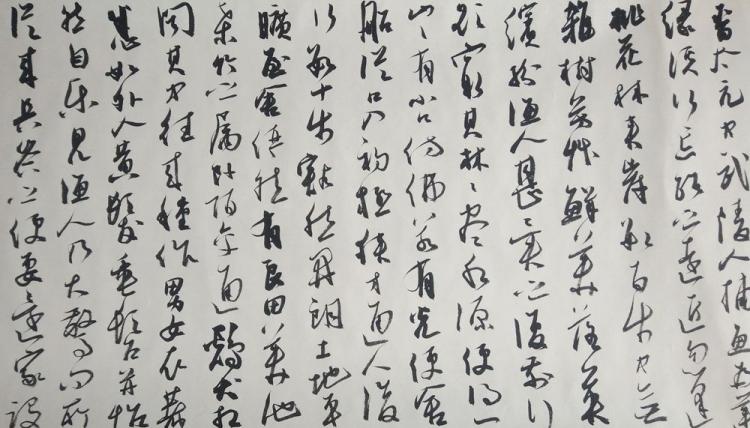 晋太元中武陵人捕魚為業
緣溪行忘路之遠近忽逢
桃花林夾岸數百步中無
雜樹芳草鮮美落英
繽紛漁人甚異之復前行
欲窮其林〻盡水源便得一
山〻有小口仿佛若有光便舍
船從口入初極狹才通人復
行數十步豁然開朗土地平
曠屋舍儼然有良田美池
桑竹之屬阡陌交通鷄犬相
聞其中往来種作男女衣著
悉如外人黄髮垂髫并怡
然自樂見漁人乃大驚問所
從来具答之便要還家設